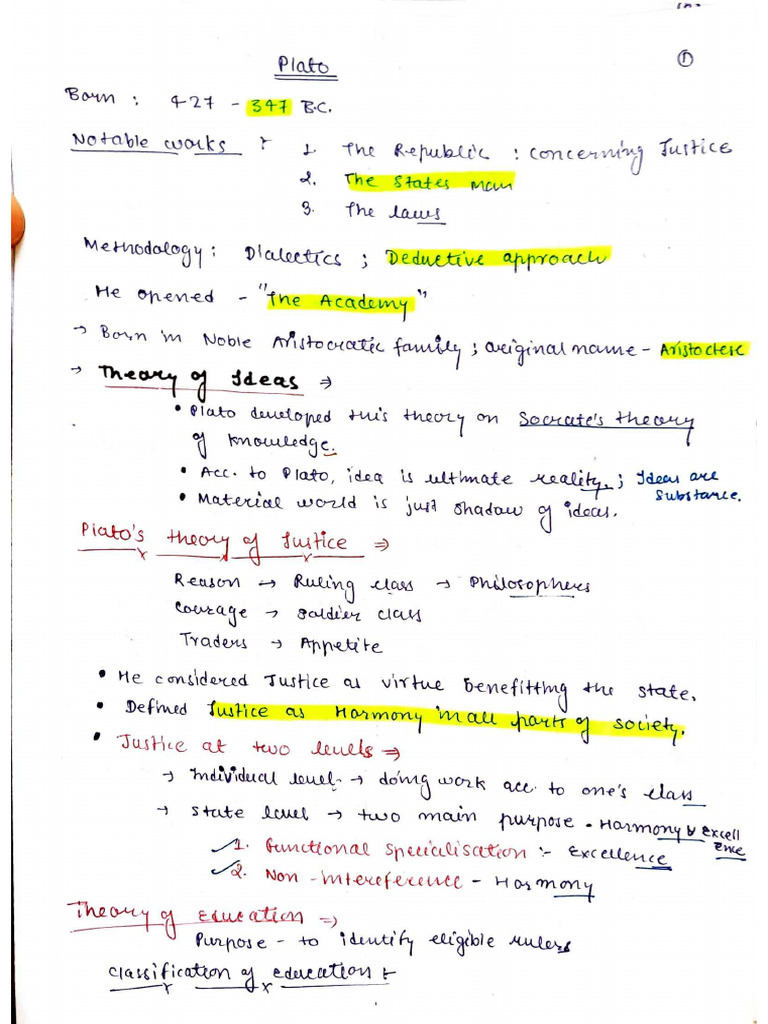 ①
Plato
Born : 427 - 347 B.C.
Notable works : 1. The Republic : concerning Justice
2. The States man
3. The laws
Methodology : Dialectics ; Deductive approach
He opened - "The Academy"
→ Born in Noble Aristocratic family ; original name - Aristoclesc
→ Theory of Ideas ⇒
• Plato developed this theory on Socrate's theory
of knowledge.
• Acc. to Plato, idea is ultimate reality. ; Ideas are
substance.
• Material world is just shadow of ideas.
Plato's theory of Justice ⇒
Reason → Ruling class → Philosophers
Courage → soldier class
Traders → Appetite
• He considered Justice as virtue benefitting the state.
• Defined Justice as Harmony in all parts of society.
• Justice at two levels ⇒
→ Individual level → doing work acc. to one's class
→ State level → two main purpose • Harmony & Excell
ence
1. Functional Specialisation :- Excellence
2. Non-intereference - Harmony
Theory of Education ⇒
Purpose - to identify eligible rulers
Classification of education :-